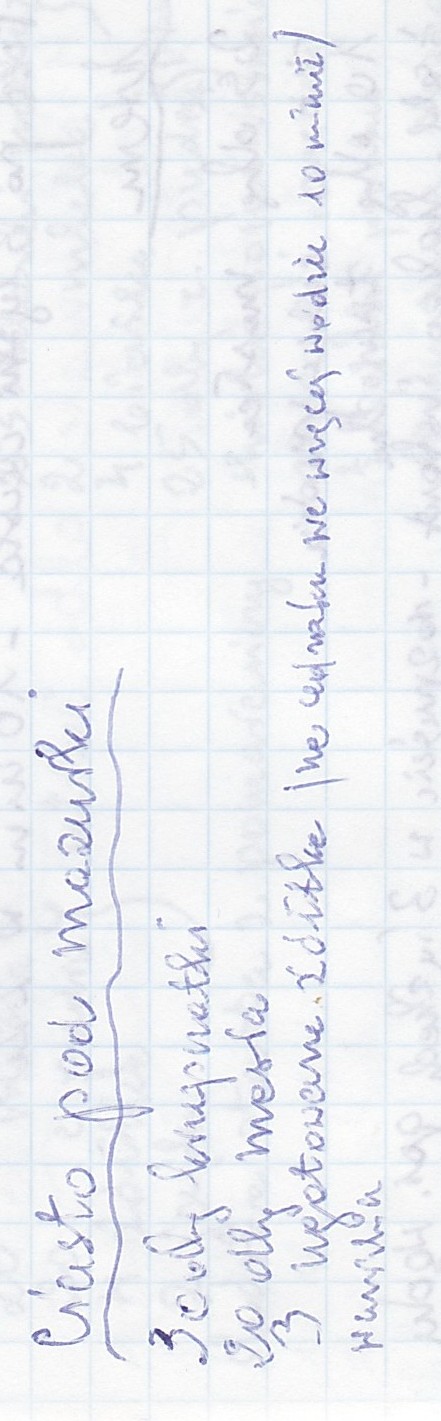 Ciasto pod mazurki
30 dkg krupczatki
20 dkg masła
3 ugotowane żółtka (na cedzaku we wrzącej wodzie 10 minut)
wanilia